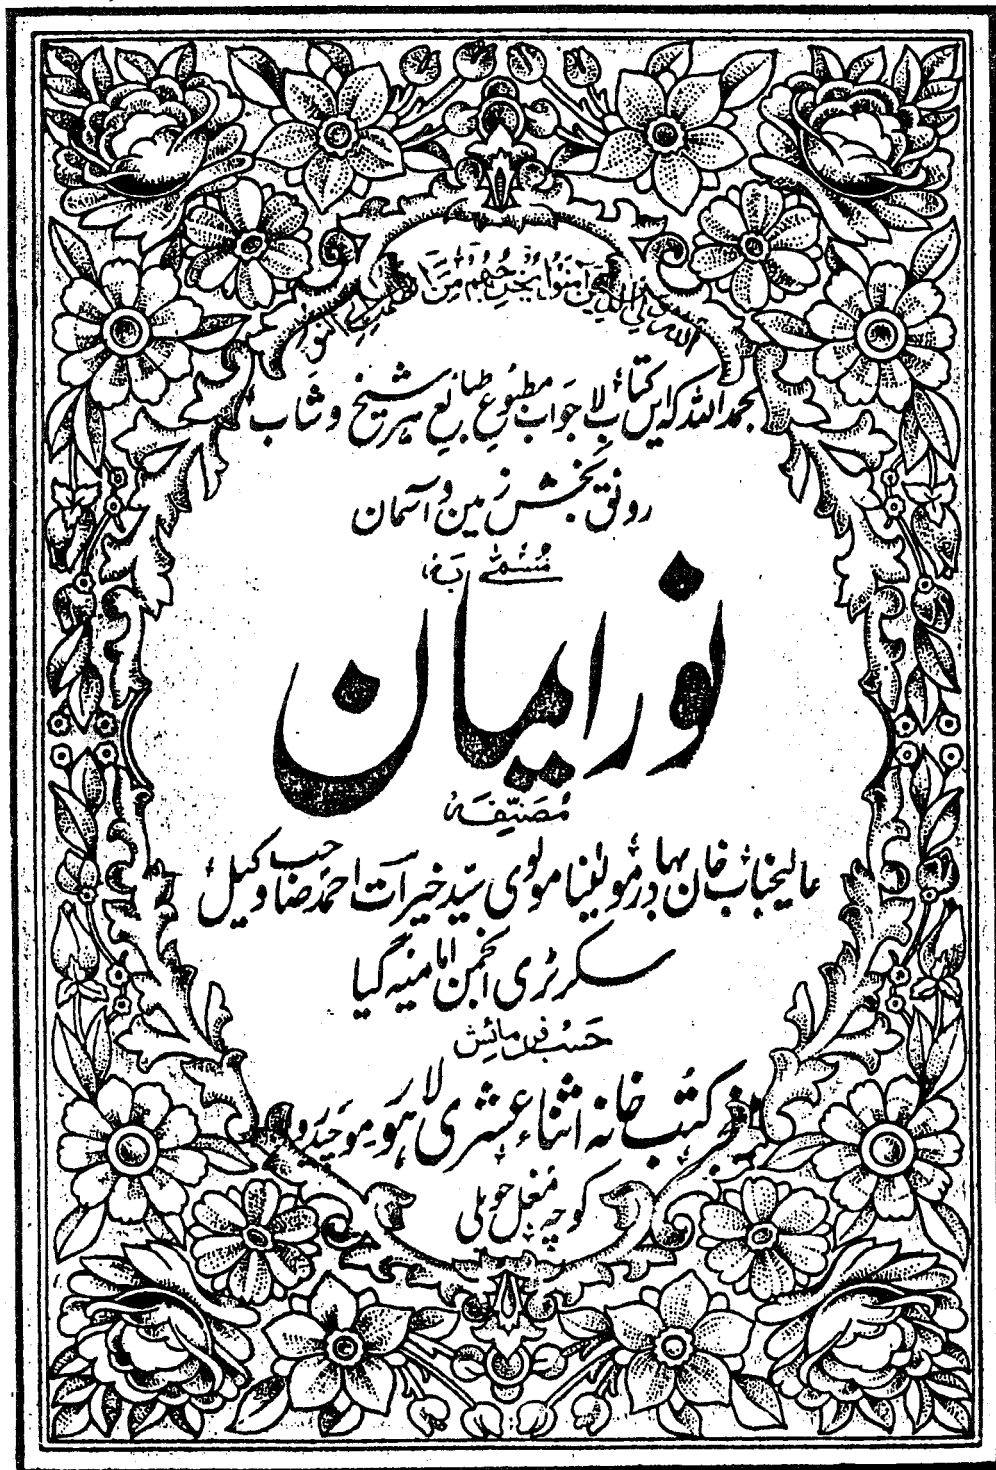 اللہ ولی الذین آمنوا یخرجہم من الظلمات الی النور
بحمد اللہ کہ ایں کتاب لا جواب مطبوع طبائع ہر شیخ و شاب
رونق بخش زمین و آسمان
مُسَمّٰی بَہ
نور ایمان
مُصَنِّفَہ
عالیجناب خان بہادر مولٰینا مولوی سیّد خیرات احمد صاحب وکیل
سکرٹری انجمن امامیہ گیا
حَسبِ فرمائِش
کتب خانہ اثناء عشری لاہور موچیدروازہ
کوچہ مغل حویلی